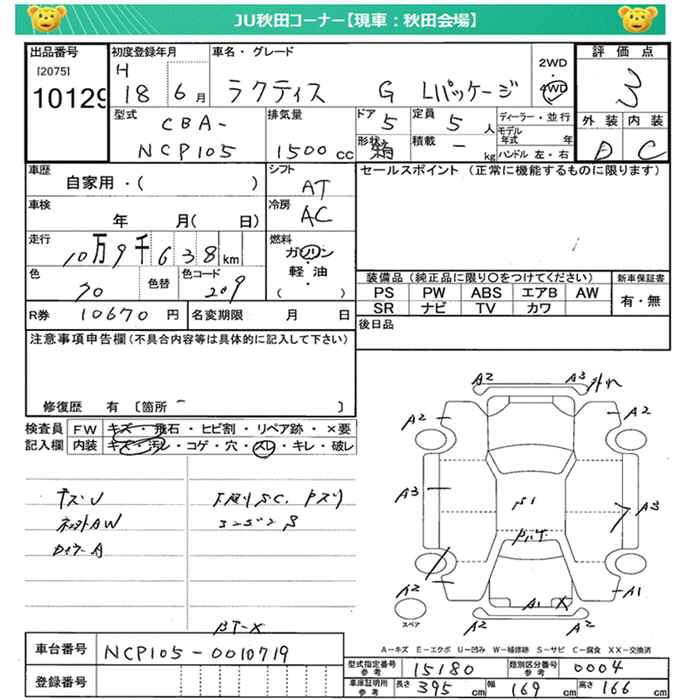 JU秋田コーナー【現車：秋田会場】
出品番号 初度登録年月 車名・グレード 2WD 評価点
[2075] H 4WD
10129 18 6月 ラクティス G Lパッケージ 3
型式 排気量 ドア 定員 ディーラー・並行 外装 内装
CBA- 5 5人 モデル年式 年 D C
NCP105 1500cc 形状 箱 積載 - kg ハンドル 左・右
車歴 シフト セールスポイント (正常に機能するものに限ります)
自家用・( ) AT
車検 冷房
年 月( 日) AC
走行 燃料
10万9千638km ガソリン
軽油
色 色替 色コード ( )
30 209
装備品 (純正品に限り○をつけてください) 新車保証書
PS PW ABS エアB AW 有・無
SR ナビ TV カワ
R券 10670円 名変期限 月 日 後日品
注意事項申告欄(不具合内容等は具体的に記入して下さい)
修復歴 有 〔箇所 - 〕
検査員 FW キズ・飛石・ヒビ割・リペア跡・×要
記入欄 内装 キズ・汚レ・コゲ・穴・スレ・キレ・破レ
A2 A3 外れ
A2 A2
A3 A3
A2 A1
A1 X
A2 A2
スペア
A-キズ E-エクボ U-凹み W-補修跡 S-サビ C-腐食 XX-交換済
車台番号 NCP105-0010719
登録番号
型式指定番号 参考 15180 類別区分番号 参考 0004
車庫証明用 参考 長さ 395cm 幅 169cm 高さ 166cm